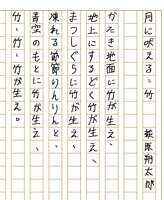 月に吠える、竹 萩原朔太郎
かたき地面に竹が生え、
地上にするどく竹が生え、
まつしぐらに竹が生え、
凍れる節節りんりんと、
青空のもとに竹が生え、
竹、竹、竹が生え。